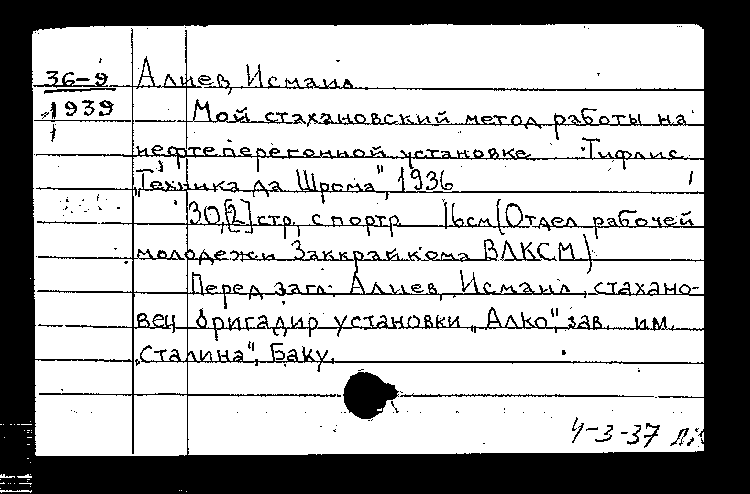 36-9 Алиев, Исмаил.
1939 Мой стахановский метод работы на
нефтеперегонной установке. Тифлис,
"Техника да Шрома", 1936
30,[2] стр, с портр 16см (Отдел рабочей
молодежи Заккрайкома ВЛКСМ)
Перед загл: Алиев, Исмаил, стахано-
вец бригадир установки "Алко", зав. им.
"Сталина", Баку.
4-3-37